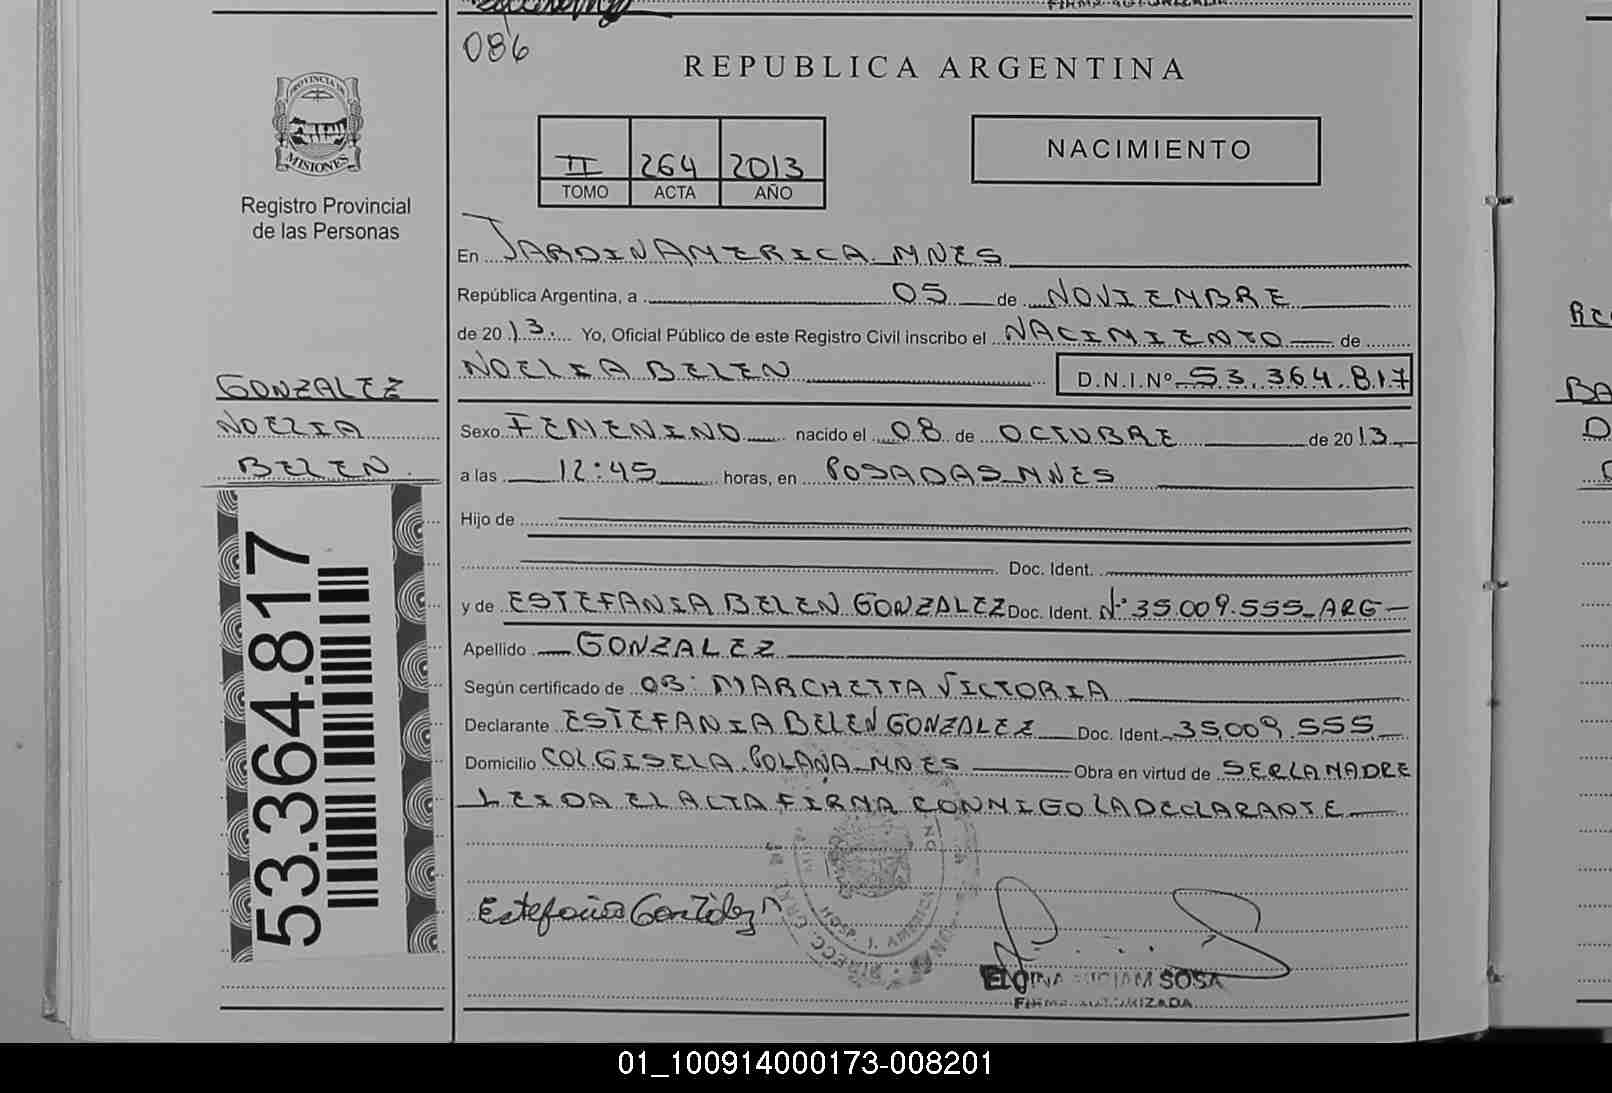 086
REPUBLICA ARGENTINA
PROVINCIA DE
MISIONES
Registro Provincial
de las Personas
II 264 2013
TOMO ACTA AÑO
NACIMIENTO
En JARDIN AMERICA MNES
República Argentina, a 05 de NOVIEMBRE
de 2013. Yo, Oficial Público de este Registro Civil inscribo el NACIMIENTO de
NOELIA BELEN D.N.I.Nº 53.364.817
GONZALEZ
NOELIA
BELEN.
Sexo FEMENINO nacido el 08 de OCTUBRE de 2013
a las 12:45 horas, en POSADAS MNES
Hijo de
Doc. Ident.
y de ESTEFANIA BELEN GONZALEZ Doc. Ident. Nº 35.009.555 ARG
Apellido GONZALEZ
Según certificado de OB: MARCHETTA VICTORIA
Declarante ESTEFANIA BELEN GONZALEZ Doc. Ident. 35.009.555
Domicilio COL GISELA POLANA MNES Obra en virtud de SER LA MADRE
LEIDA EL ACTA FIRMA CONMIGO LA DECLARANTE
53.364.817
Estefania Gonzalez
HOSP. J. AMERICA
SOSA
FIRMA AUTORIZADA
01_100914000173-008201